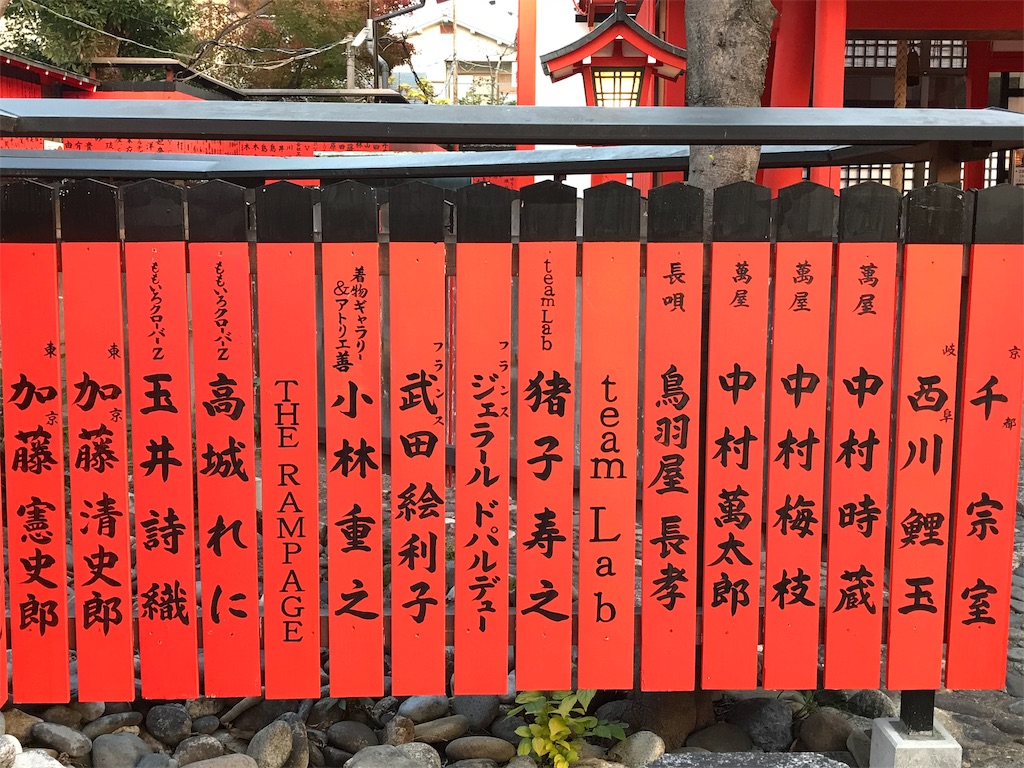 京都
千 宗室
岐阜
西川 鯉玉
萬屋
中村 時蔵
萬屋
中村 梅枝
萬屋
中村 萬太郎
長唄
鳥羽屋 長孝
team Lab
teamLab
猪子 寿之
フランス
ジェラール ドパルデュー
フランス
武田 絵利子
着物ギャラリー
&アトリエ善
小林 重之
THE RAMPAGE
ももいろクローバーZ
高城 れに
ももいろクローバーZ
玉井 詩織
東京
加藤 清史郎
東京
加藤 憲史郎